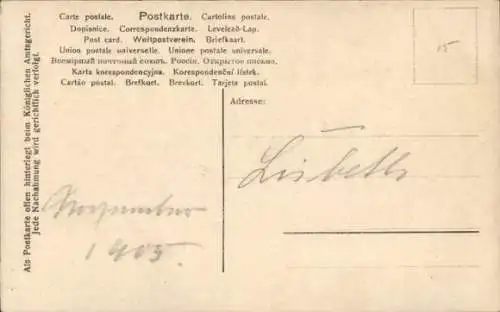 Carte postale. Postkarte. Cartolina postale.
Dopisnice. Correspondenzkarte. Levelező-Lap.
Post card. Weltpostverein. Briefkaart.
Union postale universelle. Unione postale universale.
Всемірный почтовый союзъ. Россіи. Открытое письмо.
Karta korespondencyjna. Korespondenční lístek.
Cartão postal. Brefkort. Brevkort. Tarjeta postal.
Als Postkarte offen hinterlegt beim Königlichen Amtsgericht.
Jede Nachahmung wird gerichtlich verfolgt.
15
Adresse:
Lisbeth
November
1905.